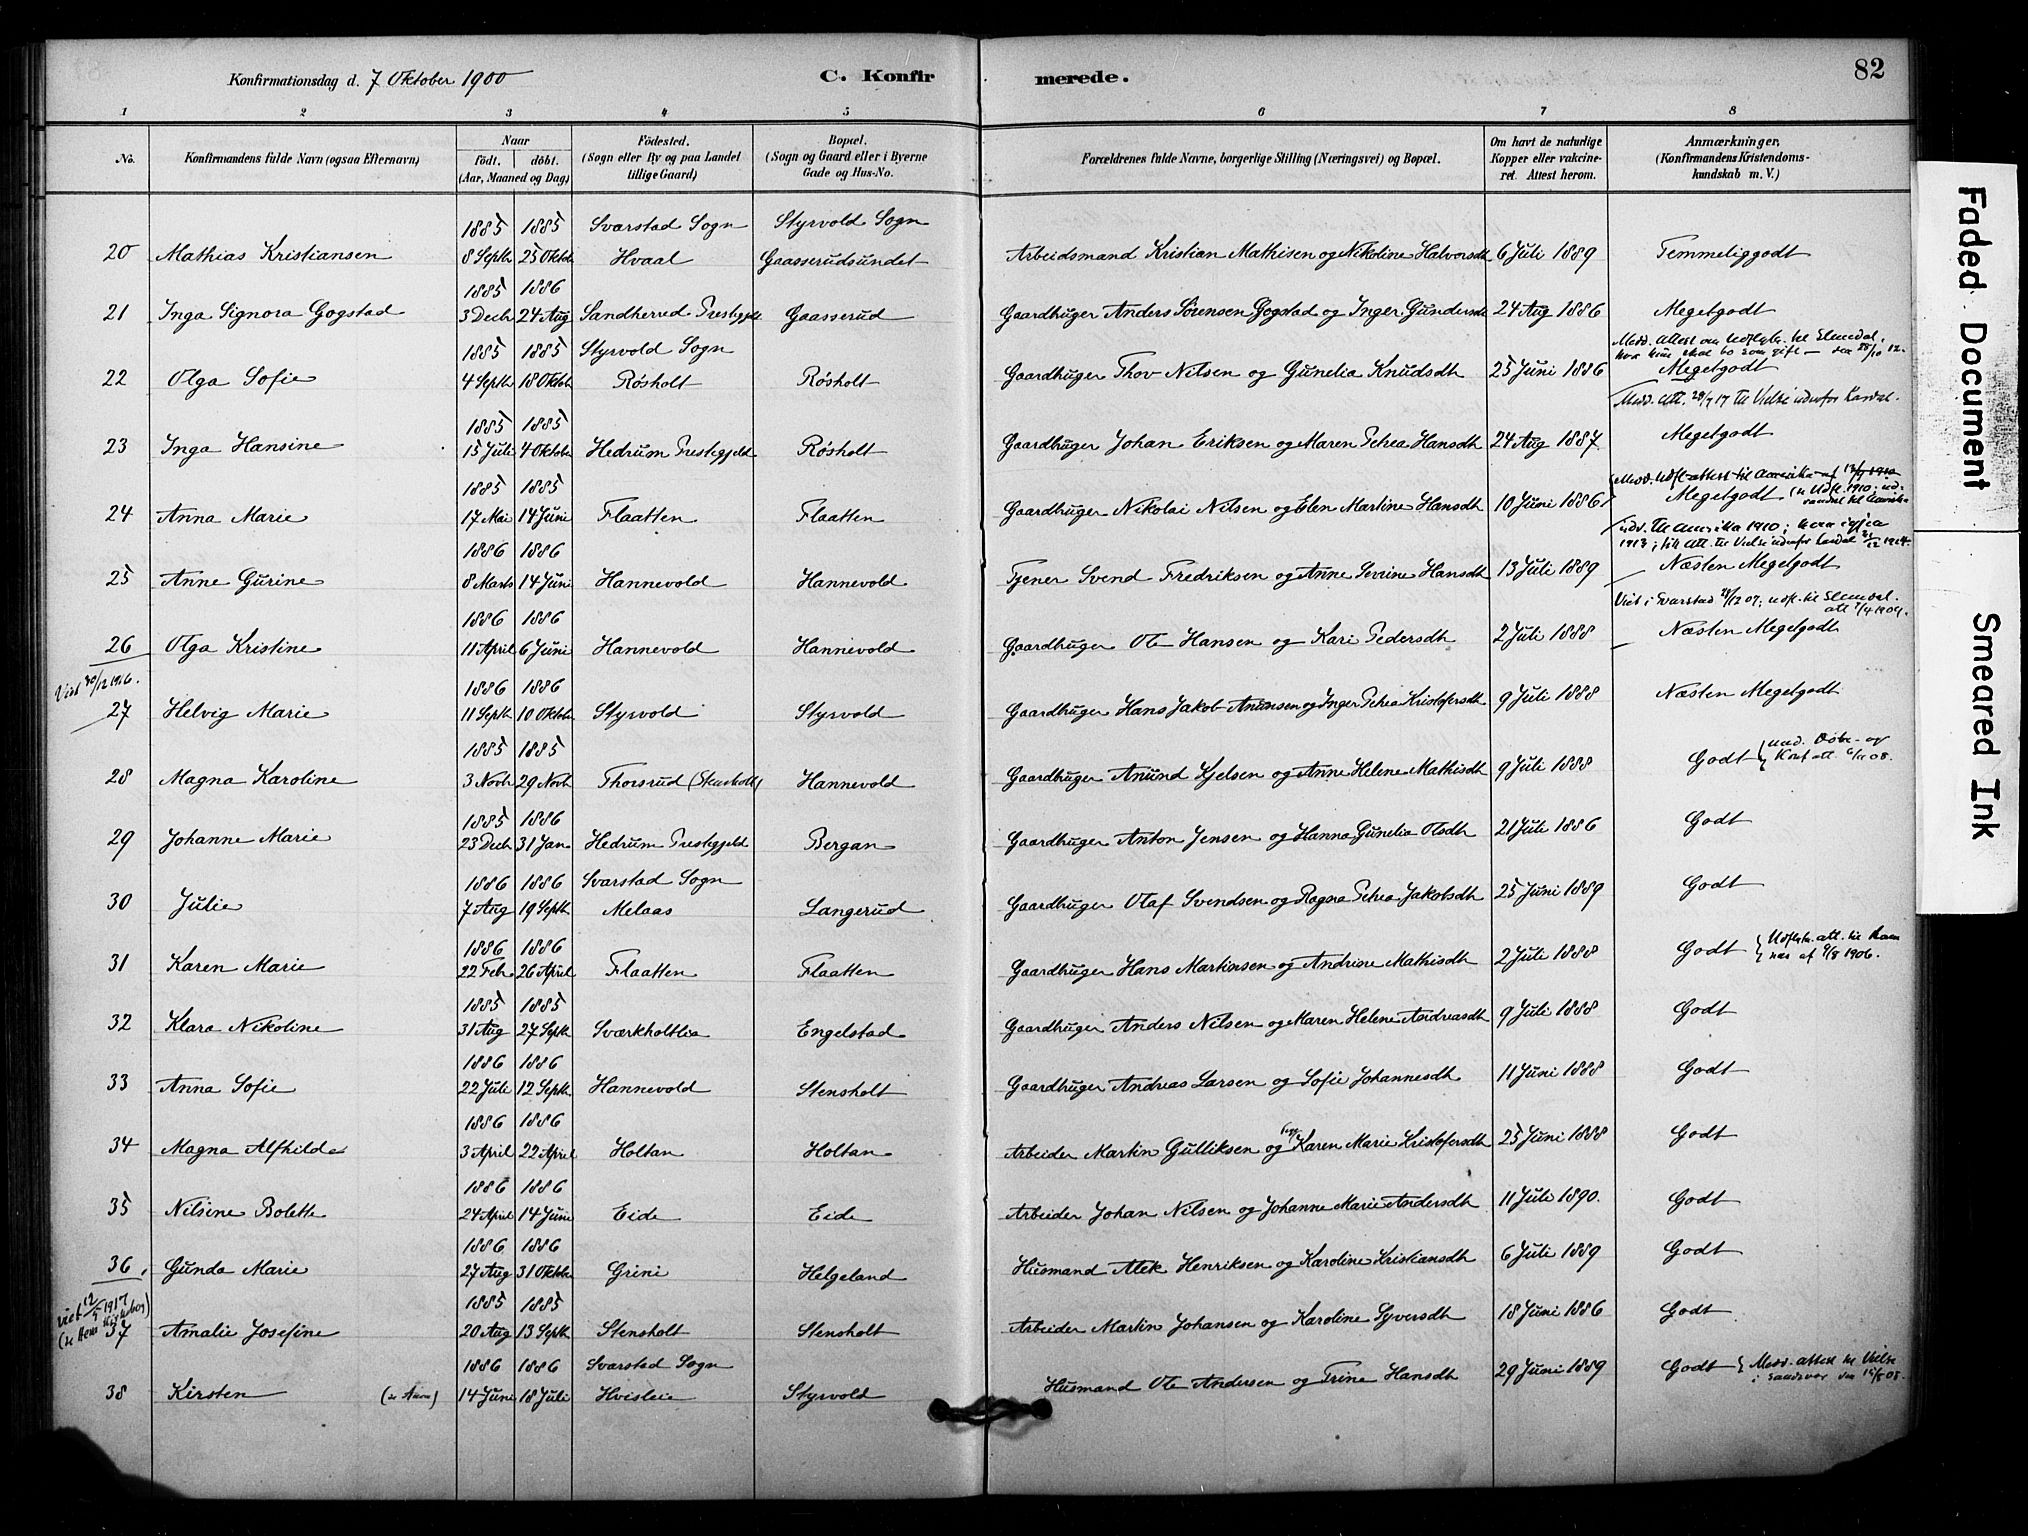 Konfirmationsdag d. 7 Oktober 1900 C. Konfirmerede. 82
1 2 3 4 5 6 7 8
No. Konfirmandens fulde Navn (ogsaa Efternavn) Naar født. døbt. (Aar, Maaned og Dag) Fødested. (Sogn eller By og paa Landet tillige Gaard) Bopæl. (Sogn og Gaard eller i Byerne Gade og Hus-No. Forældrenes fulde Navne, borgerlige Stilling (Næringsvei) og Bopæl. Om havt de naturlige Kopper eller vakcineret. Attest herom. Anmærkninger, (Konfirmandens Kristendomskundskab m. V.)
1885 1885 Svarstad Sogn Styrvold Sogn
20 Mathias Kristiansen 8 Septb 25 Oktob Hvaal Gaasserudsundet Arbeidsmand Kristian Mathisen og Nikoline Halvorsdt 6 Juli 1889 Temmeliggodt
1885 1886
21 Inga Signora Gogstad 3 Decb 24 Aug Sandherred Prestegjeld Gaasserud Gaardbuger Anders Sørensen Gogstad og Inger Gundersdt 24 Aug 1886 Megetgodt
1885 1885 Styrvold Sogn Medd. Attest om Udflytn. til Slemdal, hvor hun skal bo som gift — den 28/10 12.
22 Olga Sofie 4 Septb 18 Oktob Røsholt Røsholt Gaardbuger Thov Nilsen og Gunelia Knudsdt 25 Juni 1886 Megetgodt
1885 1885 Medd. Att. 28/7 17 til Vielse udenfor Lardal.
23 Inga Hansine 15 Juli 4 Oktob Hedrum Prestegjeld Røsholt Gaardbuger Johan Eriksen og Maren Petrea Hansdt 24 Aug 1887. Megetgodt
1885 1885 Medd. Udfl. attest til Amerika af 1910
24 Anna Marie 17 Mai 14 Juni Flaatten Flaatten Gaardbuger Nikolai Nilsen og Elen Martine Hansdt 10 Juni 1886 Megetgodt (se Udfl. 1910. udvandret til Amerika
1886 1886 udv. til Amerika 1910; kom igjen 1913; fik Att. til Vielse udenfor Lardal 12 1914.
25 Anne Gurine 8 Marts 14 Juni Hannevold Hannevold Tjener Svend Fredriksen og Anne Severine Hansdt 13 Juli 1889 Næsten Megetgodt
1886 1886 Viet i Svarstad 28/12 07; udfl. til Slemdal. att 7/4 1909.
26 Olga Kristine 11 April 6 Juni Hannevold Hannevold Gaardbuger Ole Hansen og Kari Pedersdt 2 Juli 1888 Næsten Megetgodt
Viet 30/12 1916. 1886 1886
27 Helvig Marie 11 Septb 10 Oktob Styrvold Styrvold Gaardbuger Hans Jakob Anundsen og Inger Petrea Kristofersdt 9 Juli 1888 Næsten Megetgodt
1885 1885
28 Magna Karoline 3 Novb 29 Novb Thorsrud Hannevold Gaardbuger Anund Kjelsen og Anne Helene Mathisdt 9 Juli 1888 Godt { med. Døbe- og Konf att. 6/11 08.
1885 1886
29 Johanne Marie 23 Decb 31 Jan Hedrum Prestegjeld Bergan Gaardbuger Anton Jensen og Hanna Gunelia Olsdt 21 Juli 1886 Godt
1886 1886 Svarstad Sogn
30 Julie 7 Aug 19 Septb Melaas Langerud Gaardbuger Olaf Svendsen og Ragna Petrea Jakobsdt 25 Juni 1889 Godt
1886 1886
31 Karen Marie 22 Feb. 26 April Flaatten Flaatten Gaardbuger Hans Martinsen og Andrine Mathisdt 2 Juli 1888 Godt { Udflytn. att. til Ramnæs af 9/8 1906.
1885 1885
32 Klara Nikoline 31 Aug 27 Septb Sværkholtlia Engelstad Gaardbuger Anders Nilsen og Maren Helene Andreasdt 9 Juli 1888 Godt
1886 1886
33 Anna Sofie 22 Juli 12 Septb Hannevold Stensholt Gaardbuger Andreas Larsen og Sofie Johannesdt 11 Juni 1888 Godt
1886 1886
34 Magna Alfhilde 3 April 22 April Holtan Holtan Arbeider Martin Gulliksen og Karen Marie Kristofersdt 25 Juni 1888 Godt
1886 1886
35 Nilsine Bolette 24 April 14 Juni Eide Eide Arbeider Johan Nilsen og Johanne Marie Andersdt 11 Juli 1890. Godt
1886 1886
36 Gunda Marie 27 Aug 31 Oktob Grini Helgeland Husmand Alek Henriksen og Karoline Kristiansdt 6 Juli 1889 Godt
viet 12/5 1917 1885 1885
37 Amalie Josefine 20 Aug 13 Septb Stensholt Stensholt Arbeider Martin Johansen og Karoline Syversdt 18 Juni 1886 Godt
1886 1886 Svarstad Sogn
38 Kirsten 14 Juni 18 Juli Hvisleie Styrvold Husmand Ole Andersen og Trine Hansdt 29 Juni 1889 Godt { Medd. attest til Vielse i Sandsvær den 15/8 08.
Faded Document
Smeared Ink